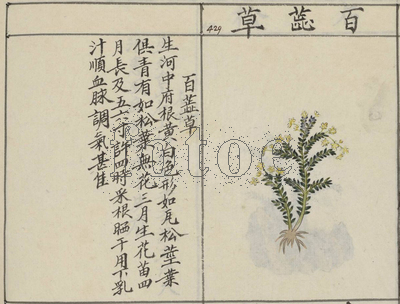 百蕊草
429
百蕊草
生河中府根黃白色形如瓦松莖葉
俱青有如松葉無花三月生花苗四
月長及五六寸許四時采根晒干用下乳
汁順血脉調氣甚佳